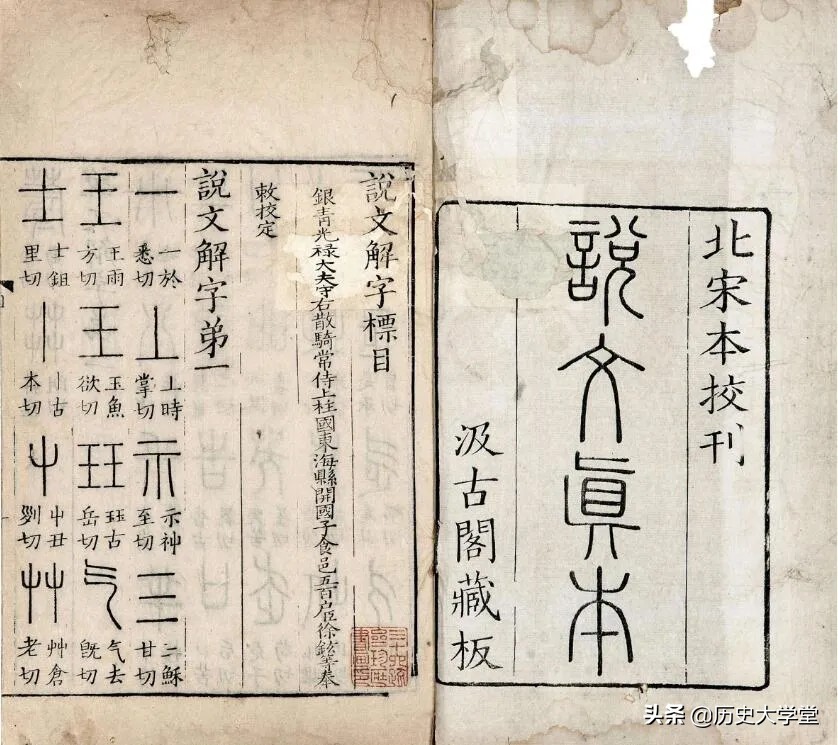 北宋本挍刊
說文眞本
汲古閣藏板
說文解字標目
銀青光祿大夫守右散騎常侍上柱國東海縣開國子食邑五百戶臣徐鉉等奉
敕挍定
說文解字弟一
一 一於悉切 丄 上時掌切 示 示神至切 三 三穌甘切
王 王雨方切 王 玉魚欲切 玨 玨古岳切 气 气去旣切
士 士鉏里切 丨 丨古本切 屮 屮丑切 艸 艸倉老切
头条 @历史大学堂